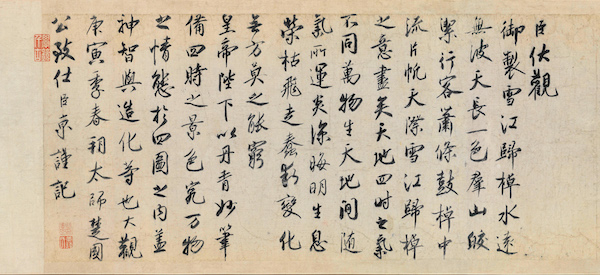 臣伏觀
御製雪江歸棹水遠
無波天長一色羣山皎
潔行客蕭條鼓棹中
流片帆天際雪江歸棹
之意盡矣天地四時之氣
不同萬物生天地間隨
氣所運炎涼晦明生息
榮枯飛走蠢動變化
無方莫之能窮
皇帝陛下以丹青妙筆
備四時之景色究萬物
之情態於四圖之内蓋
神智與造化等也大觀
庚寅季春朔太師楚國
公致仕臣京謹記